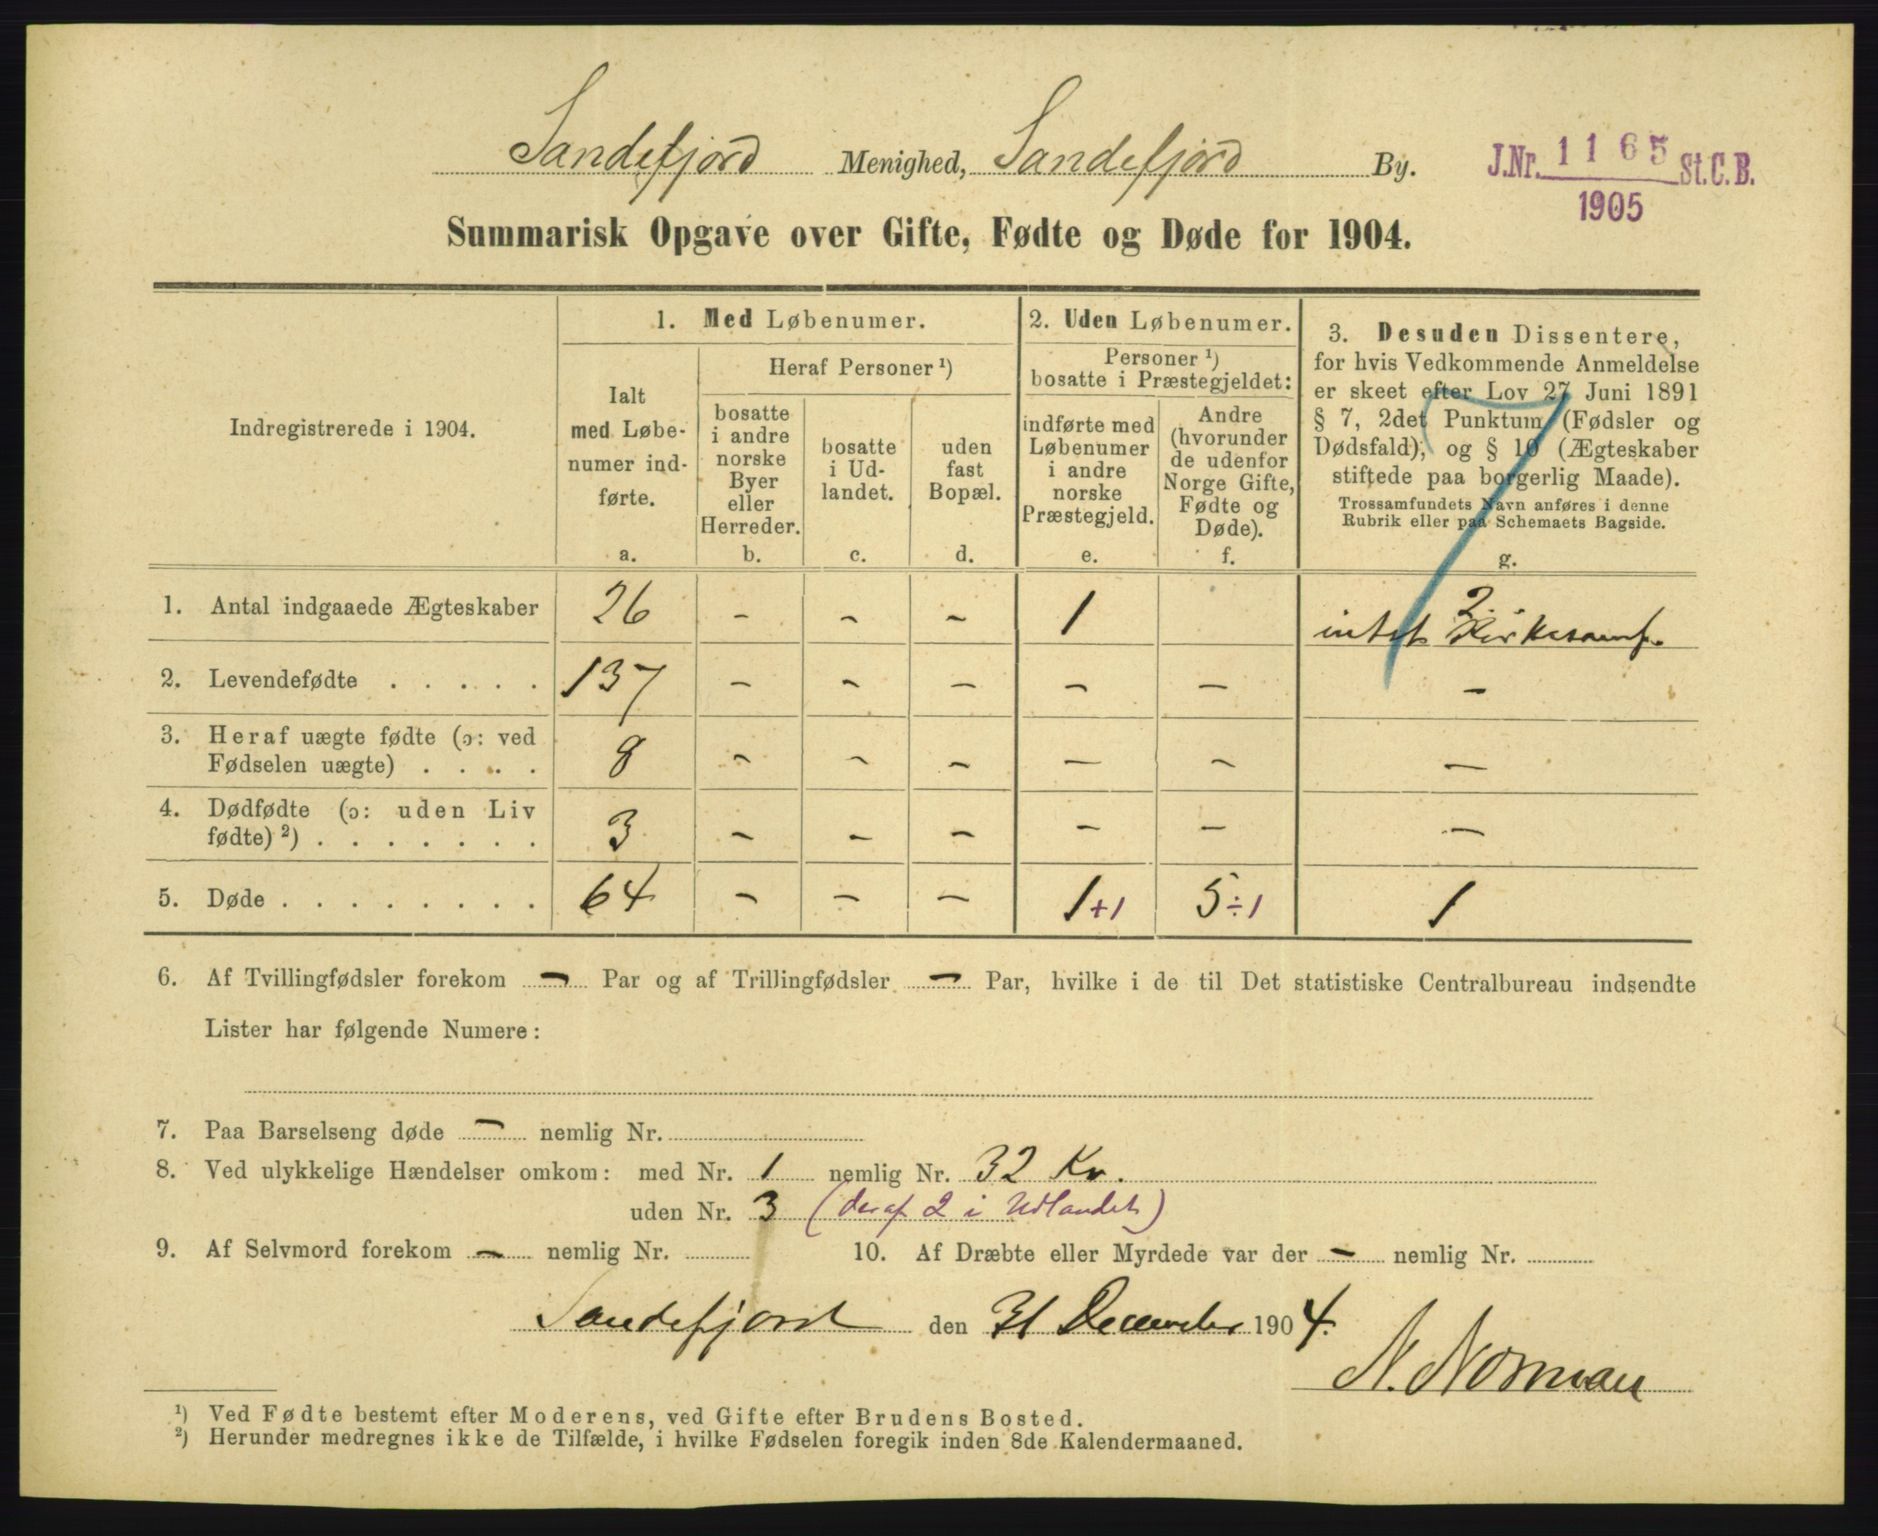 Sandefjord Menighed, Sandefjord By.
J.Nr. 1165 St.C.B.
1905
Summarisk Opgave over Gifte, Fødte og Døde for 1904.
Indregistrerede i 1904.
1. Med Løbenumer.
Ialt
med Løbe-
numer ind-
førte.
a.
Heraf Personer ¹)
bosatte
i andre
norske
Byer
eller
Herreder.
b.
bosatte
i Ud-
landet.
c.
uden
fast
Bopæl.
d.
2. Uden Løbenumer.
Personer ¹)
bosatte i Præstegjeldet:
indførte med
Løbenumer
i andre
norske
Præstegjeld.
e.
Andre
(hvorunder
de udenfor
Norge Gifte,
Fødte og
Døde).
f.
3. Desuden Dissentere,
for hvis Vedkommende Anmeldelse
er skeet efter Lov 27 Juni 1891
§ 7, 2det Punktum (Fødsler og
Dødsfald), og § 10 (Ægteskaber
stiftede paa borgerlig Maade).
Trossamfundets Navn anføres i denne
Rubrik eller paa Schemaets Bagside.
g.
1. Antal indgaaede Ægteskaber 26 - - - 1 2
intet Kirkesamf.
2. Levendefødte . . . . . 137 - - - - - -
3. Heraf uægte fødte (ɔ: ved
Fødselen uægte) . . . . 8 - - - - - -
4. Dødfødte (ɔ: uden Liv
fødte) ²) . . . . . . . 3 - - - - - -
5. Døde . . . . . . . . 64 - - - 1+1 5÷1 1
6. Af Tvillingfødsler forekom - Par og af Trillingfødsler - Par, hvilke i de til Det statistiske Centralbureau indsendte
Lister har følgende Numere:
7. Paa Barselseng døde - nemlig Nr.
8. Ved ulykkelige Hændelser omkom: med Nr. 1 nemlig Nr. 32 Kv.
uden Nr. 3 (deraf 2 i Udlandet)
9. Af Selvmord forekom - nemlig Nr. 10. Af Dræbte eller Myrdede var der - nemlig Nr.
Sandefjord den 31 December 1904.
N. Norman
¹) Ved Fødte bestemt efter Moderens, ved Gifte efter Brudens Bosted.
²) Herunder medregnes ikke de Tilfælde, i hvilke Fødselen foregik inden 8de Kalendermaaned.